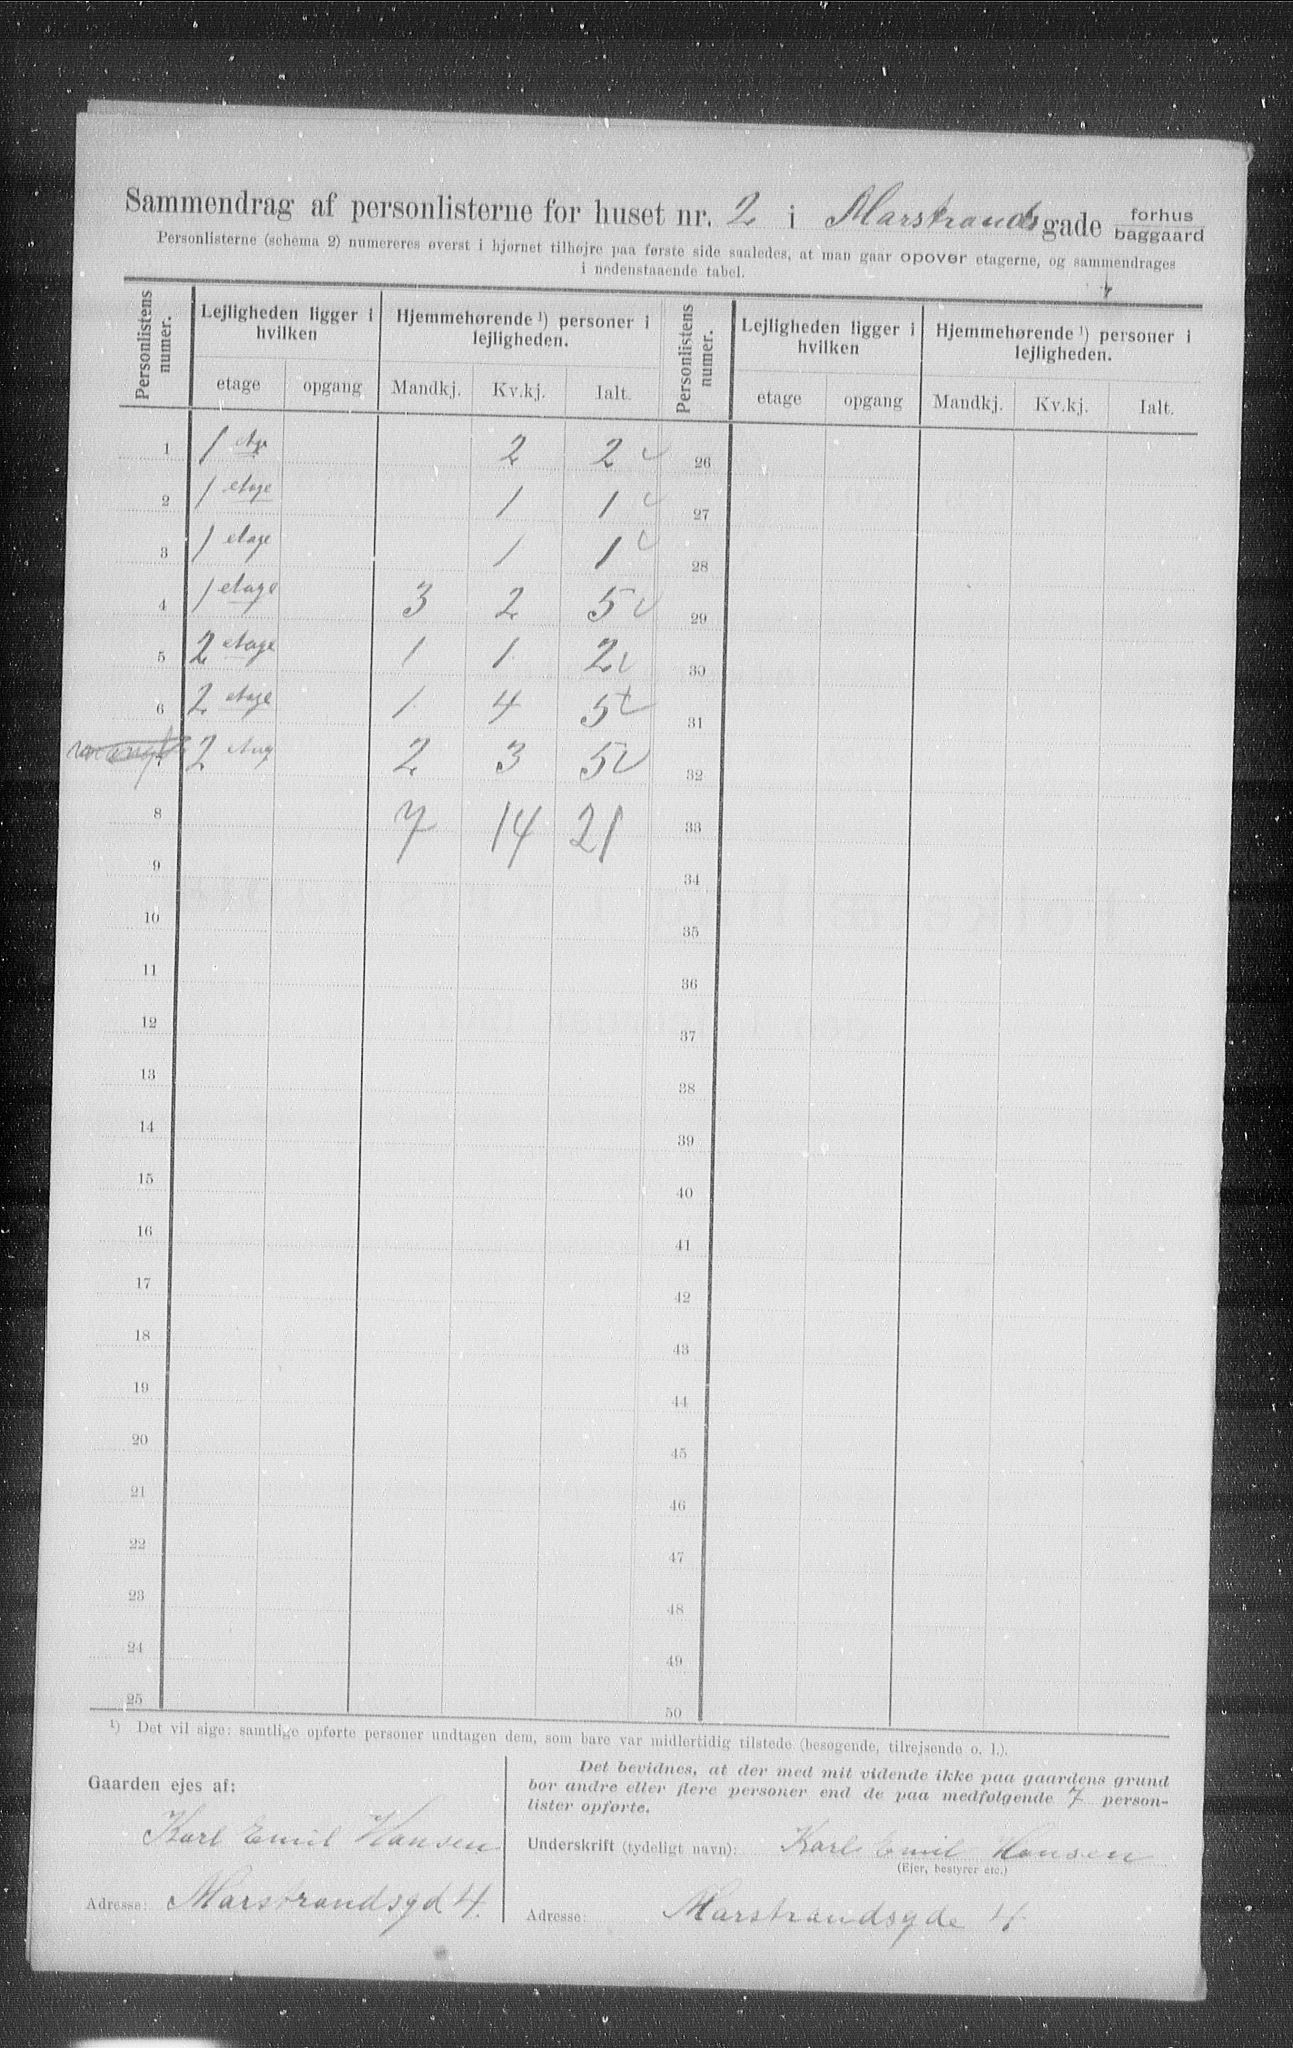 Sammendrag af personlisterne for huset nr. 2 i Marstrandsgade forhus baggaard
Personlisterne (schema 2) numereres øverst i hjørnet tilhøjre paa første side saaledes, at man gaar opover etagerne, og sammendrages
i nedenstaaende tabel.
Personlistens numer. Lejligheden ligger i hvilken Hjemmehørende ¹) personer i lejligheden. Personlistens numer. Lejligheden ligger i hvilken Hjemmehørende ¹) personer i lejligheden.
etage opgang Mandkj. Kv.kj. Ialt. etage opgang Mandkj. Kv.kj. Ialt.
1 1 2 2 26
2 1 etage 1 1 27
3 1 etage 1 1 28
4 1 etage 3 2 5 29
5 2 etage 1 1 2 30
6 2 etage 1 4 5 31
7 2 2 3 5 32
8 7 14 21 33
9 34
10 35
11 36
12 37
13 38
14 39
15 40
16 41
17 42
18 43
19 44
20 45
21 46
22 47
23 48
24 49
25 50
¹) Det vil sige: samtlige opførte personer undtagen dem, som bare var midlertidig tilstede (besøgende, tilrejsende o. l.).
Gaarden ejes af:
Karl Emil Hansen
Adresse: Marstrandsgd 4.
Det bevidnes, at der med mit vidende ikke paa gaardens grund
bor andre eller flere personer end de paa medfølgende 7 person-
lister opførte.
Underskrift (tydeligt navn): Karl Emil Hansen
(Ejer, bestyrer etc.)
Adresse: Marstrandsgde 4